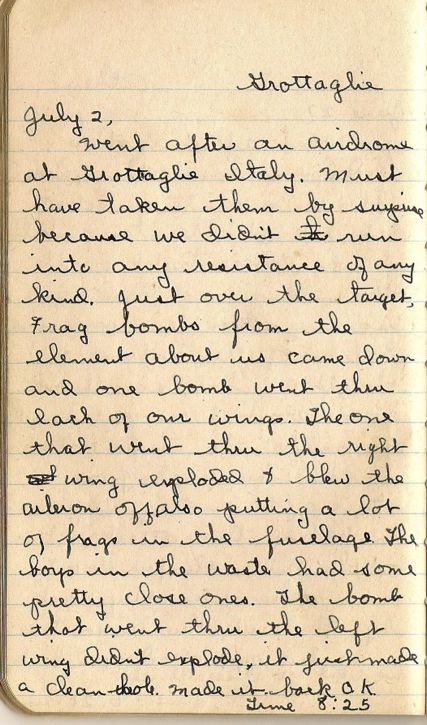 Grottaglie
July 2,
Went after an airdrome
at Grottaglie Italy. Must
have taken them by surprise
because we didn't run
into any resistance of any
kind. Just over the target,
Frag bombs from the
element about us came down
and one bomb went thru
each of our wings. The one
that went thru the right
wing exploded & blew the
aileron off also putting a lot
of frags in the fuselage The
boys in the waste had some
pretty close ones. The bomb
that went thru the left
wing didn't explode, it just made
a clean hole. Made it back O.K.
Time 8:25